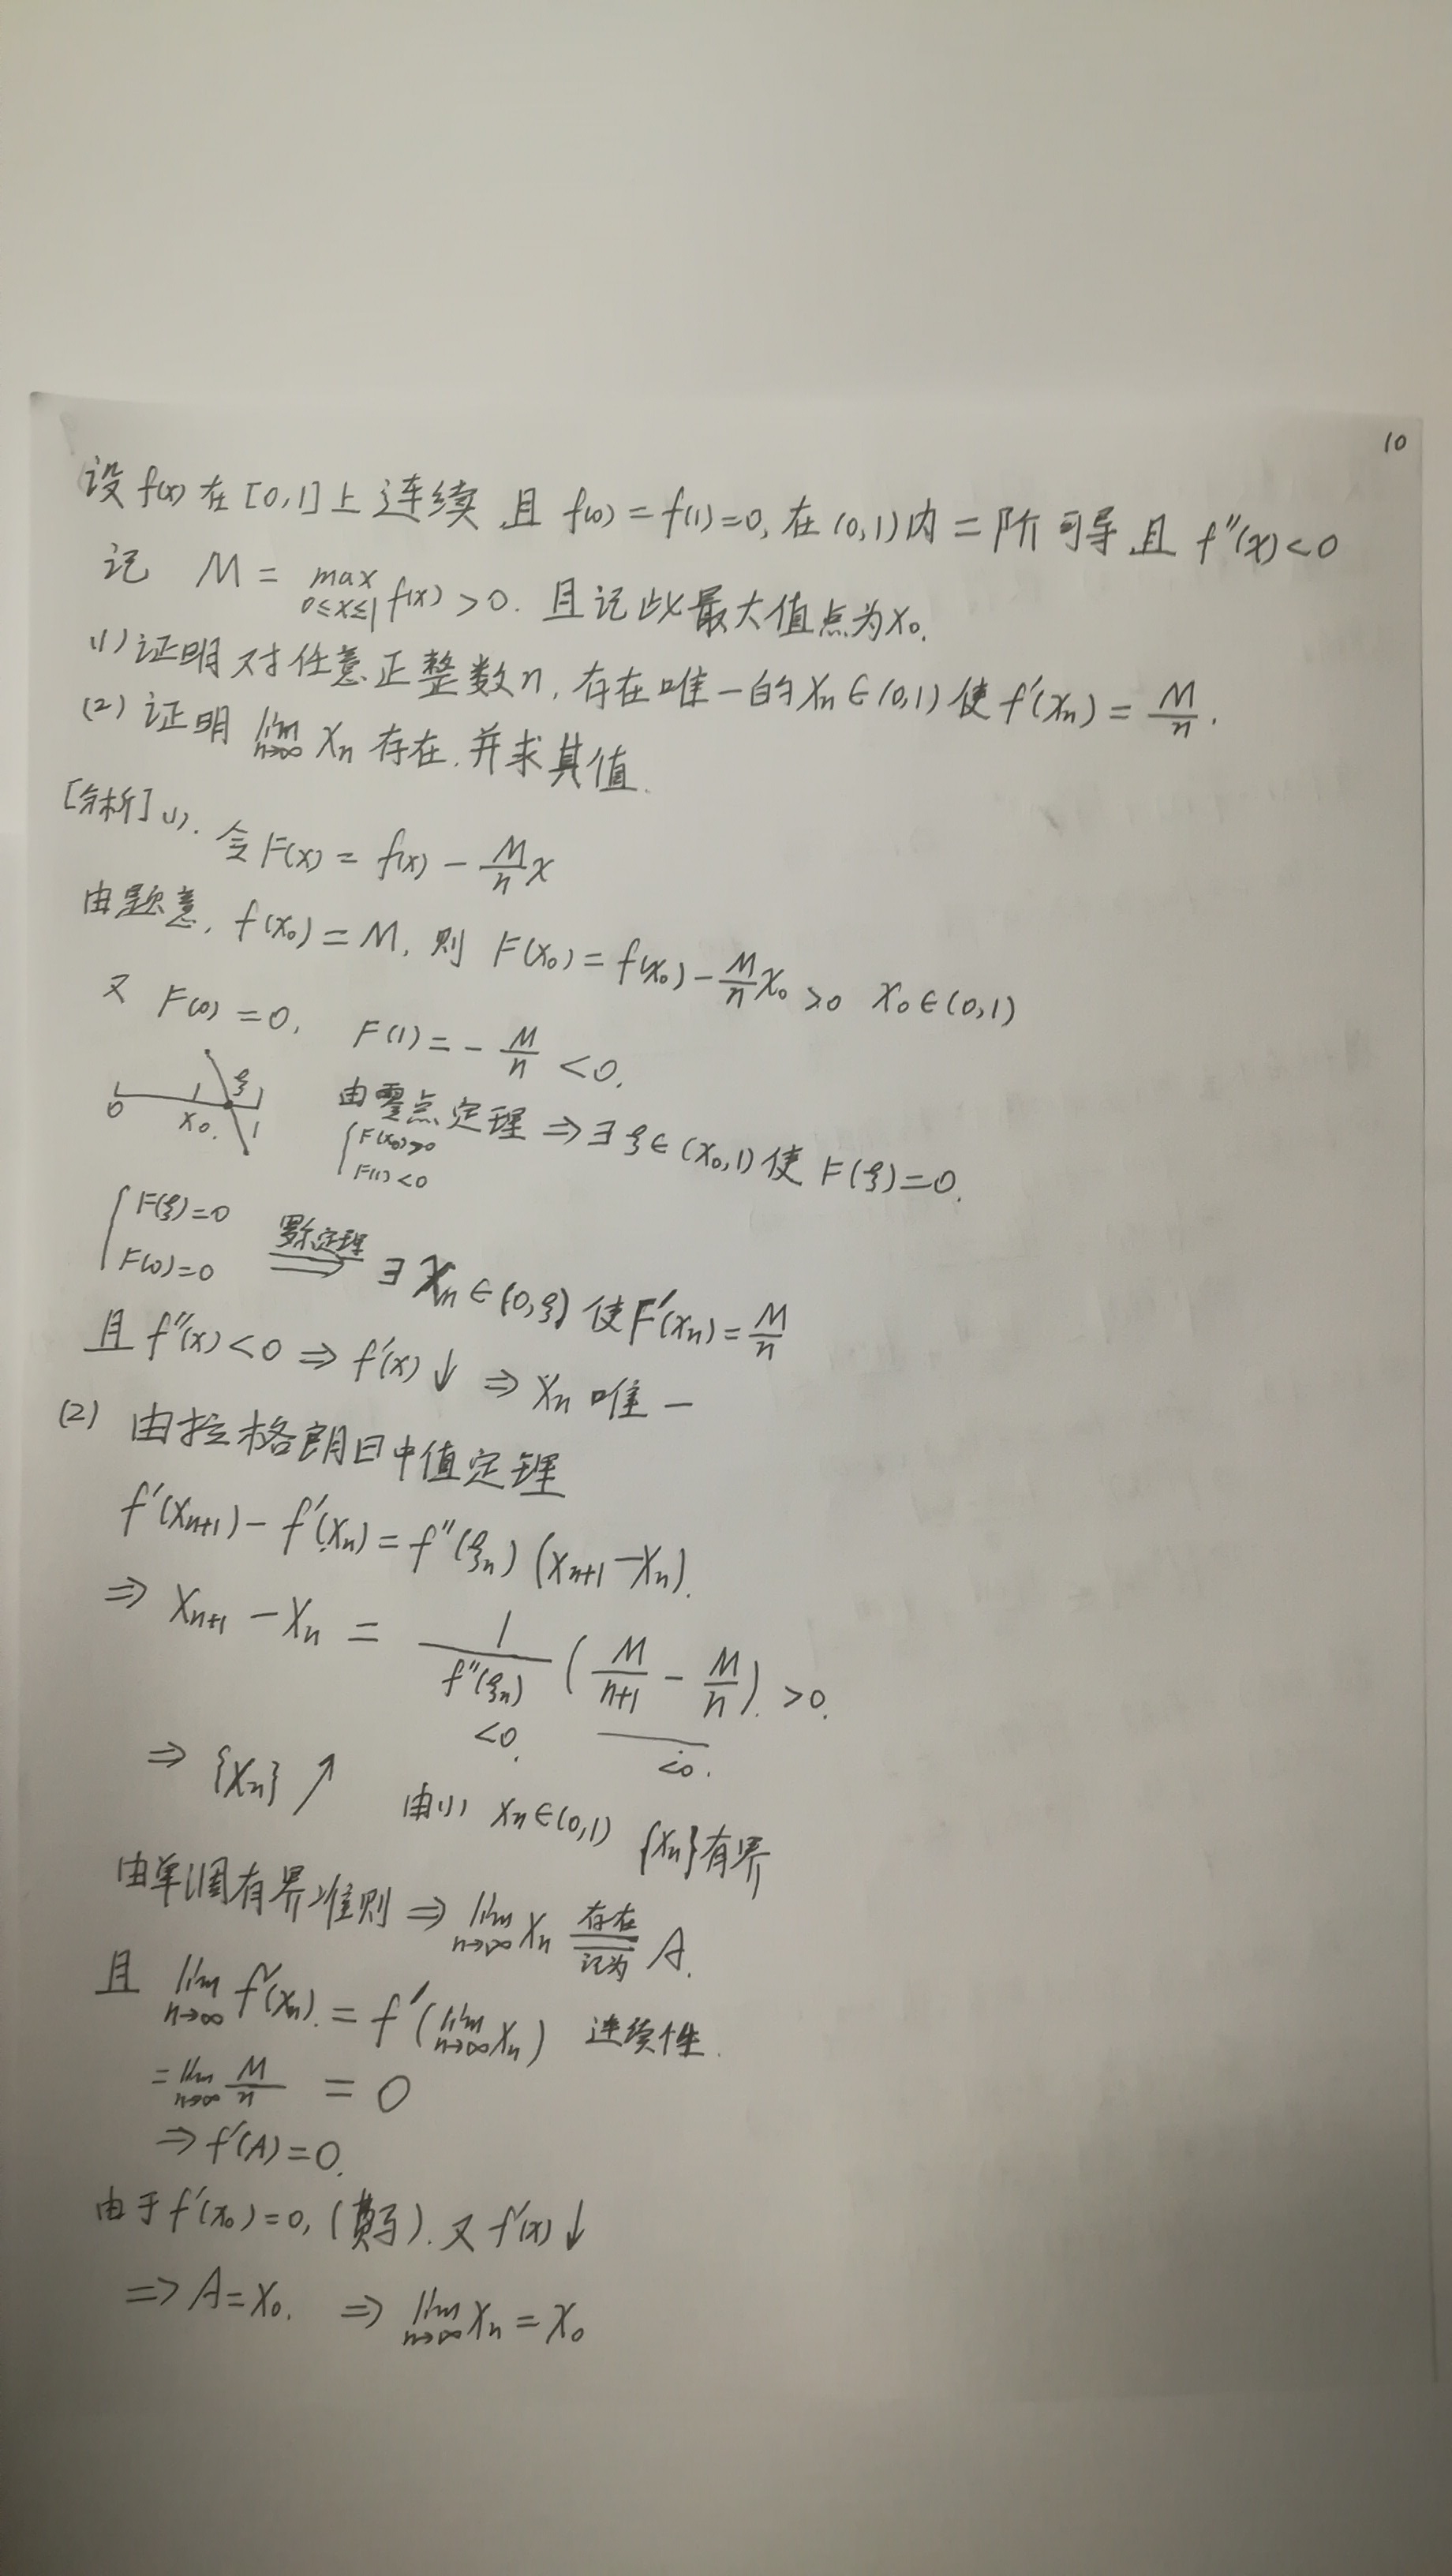 10
设f(x)在[0,1]上连续且f(0)=f(1)=0,在(0,1)内二阶可导且f''(x)<0
记 M = max_{0≤x≤1} f(x) >0. 且记此最大值点为x₀.
(1)证明对任意正整数n,存在唯一的xₙ∈(0,1)使f'(xₙ)=M/n.
(2)证明 lim_{n→∞} xₙ 存在,并求其值.
[分析](1). 令F(x)=f(x)-M/n x
由题意, f(x₀)=M, 则 F(x₀)=f(x₀)-M/n x₀ >0 x₀∈(0,1)
又 F(0)=0, F(1)=-M/n <0.
0 x₀ ξ 1
由零点定理 ⇒∃ξ∈(x₀,1)使F(ξ)=0.
{F(x₀)>0
F(1)<0
{F(ξ)=0
F(0)=0 罗尔定理 ⇒ ∃xₙ∈(0,ξ)使F'(xₙ)=M/n
且f''(x)<0⇒f'(x)↓ ⇒xₙ唯一
(2) 由拉格朗日中值定理
f'(xₙ₊₁)-f'(xₙ)=f''(ξₙ)(xₙ₊₁-xₙ).
⇒ xₙ₊₁-xₙ = 1/f''(ξₙ) (M/(n+1) - M/n). >0.
<0. <0.
⇒ {xₙ}↗ 由(1) xₙ∈(0,1) {xₙ}有界
由单调有界准则⇒ lim_{n→∞} xₙ 存在 记为 A.
且 lim_{n→∞} f'(xₙ). = f'(lim_{n→∞} xₙ) 连续性.
= lim_{n→∞} M/n = 0
⇒f'(A)=0.
由于f'(x₀)=0,(费马).又f'(x)↓
⇒A=x₀. ⇒ lim_{n→∞} xₙ = x₀